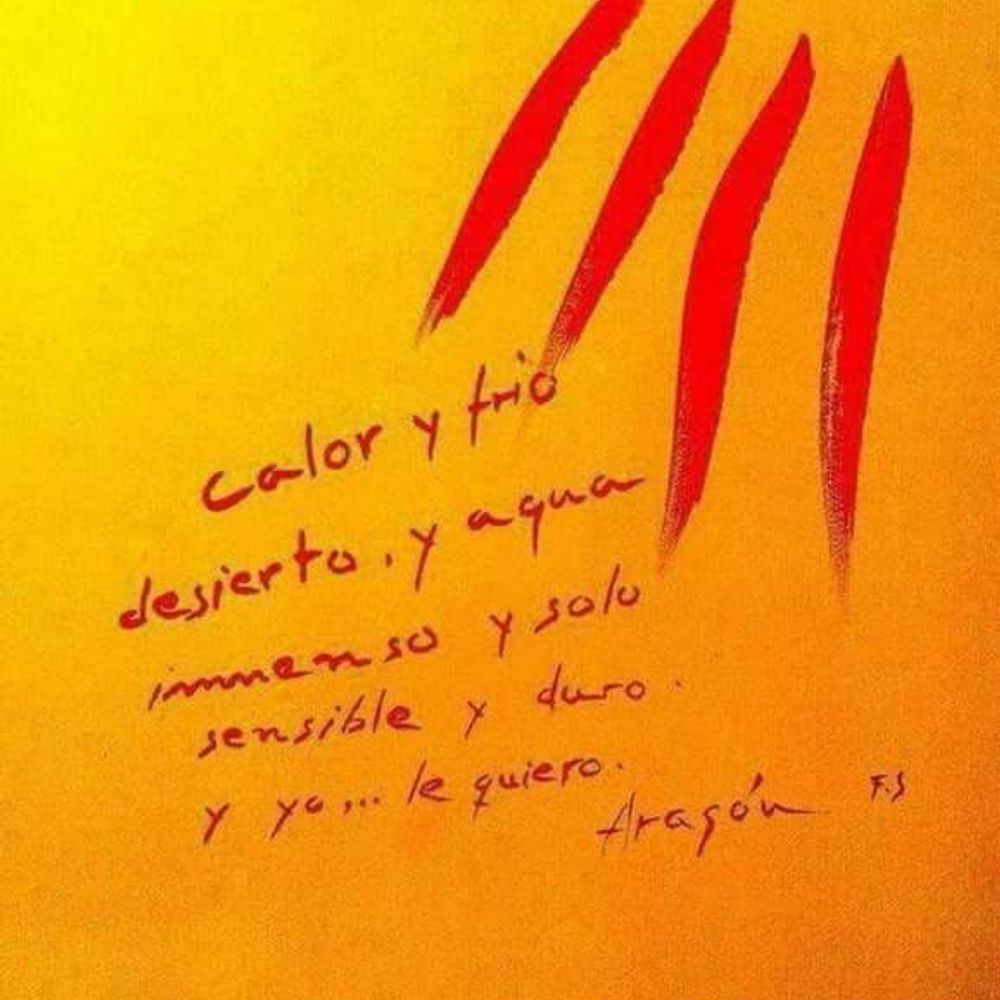 calor y frio
desierto. y agua
inmenso y solo
sensible y duro.
y yo... le quiero.
Aragón F.S